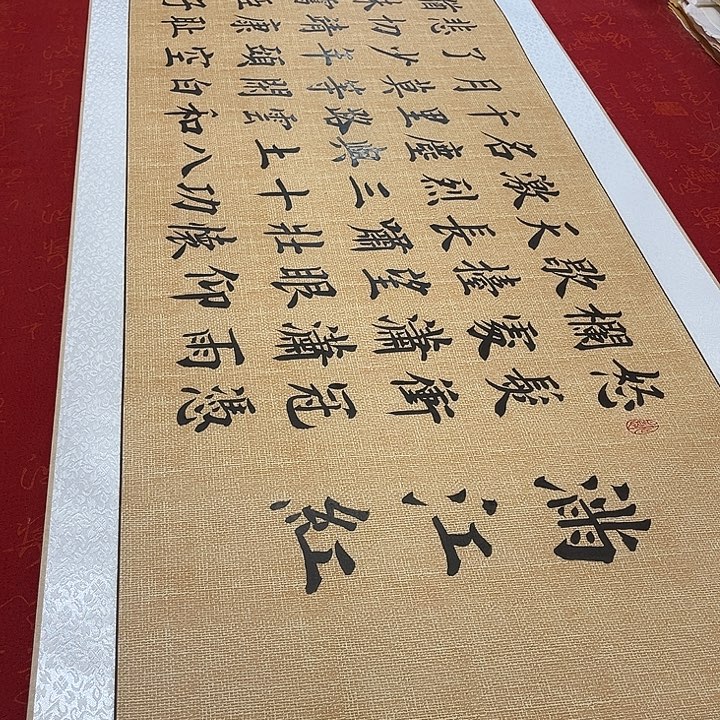 滿江紅
怒髮衝冠憑
欄處瀟瀟雨
歇擡望眼仰
天長嘯壯懷
激烈三十功
名塵與土八
千里路雲和
月莫等閑白
了少年頭空
悲切靖康恥